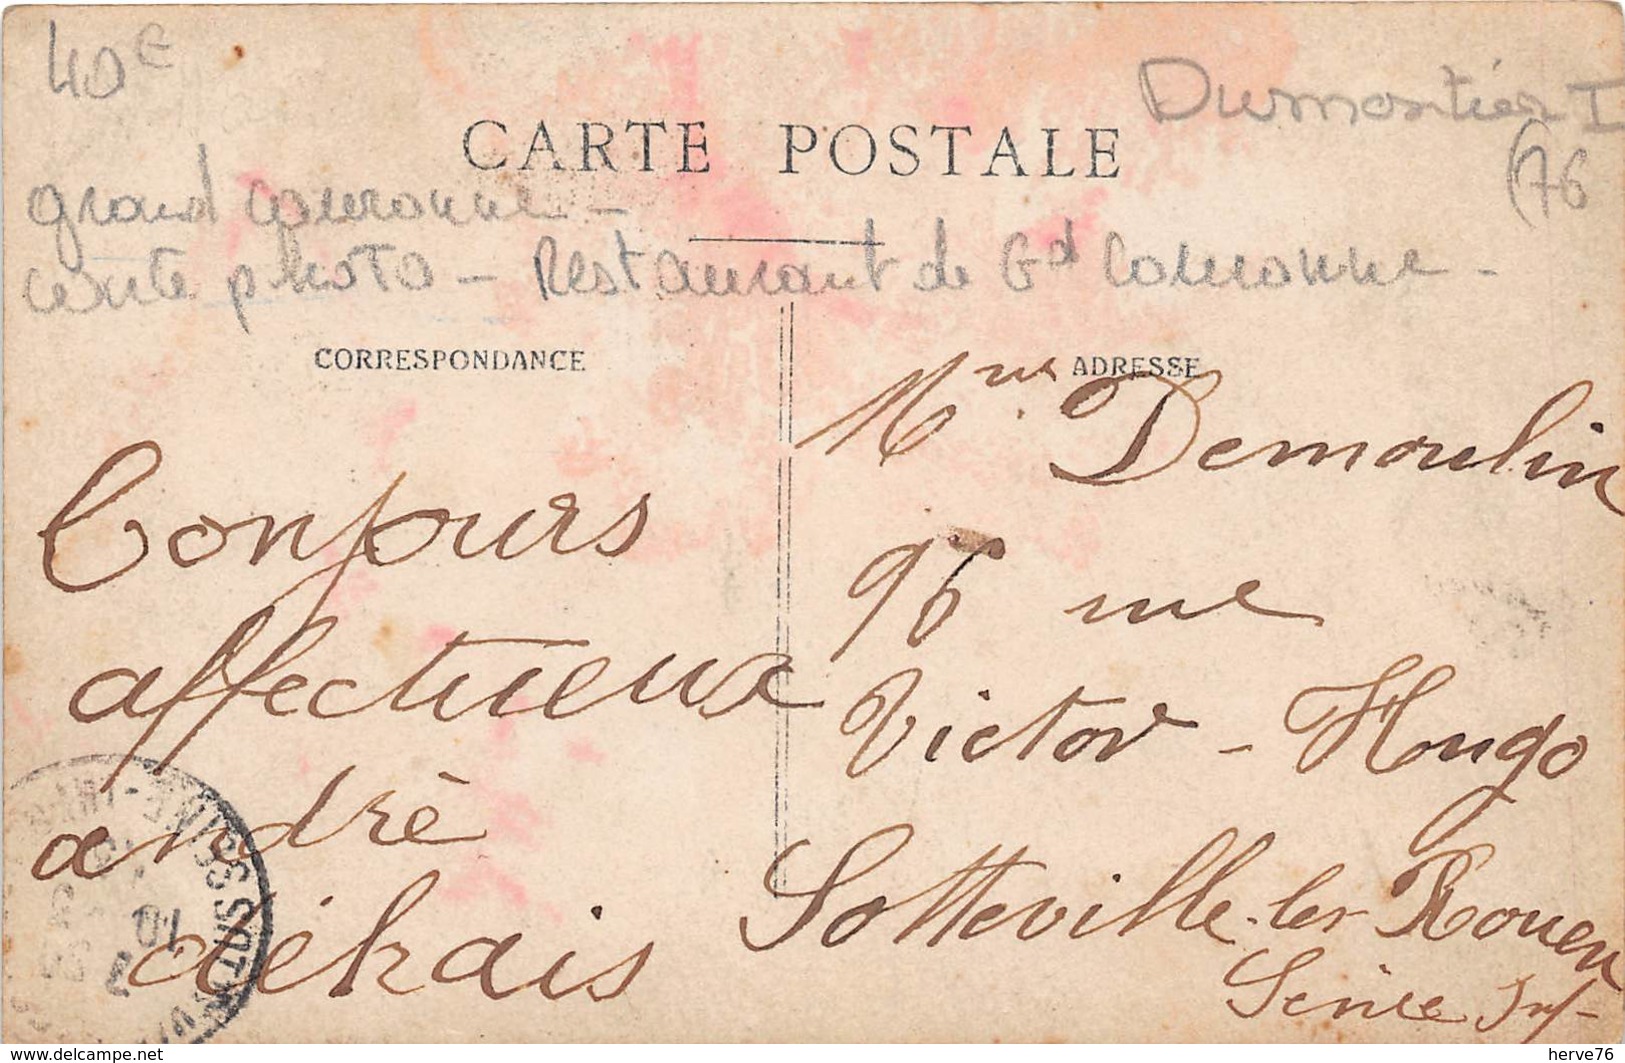 40€
Dumontier I
CARTE POSTALE
(76
grand couronne -
carte photo - Restaurant de Gd Couronne -
CORRESPONDANCE
ADRESSE
Mme Demoulin
96 rue
Victor - Hugo
Sotteville-les Rouen
Seine Inf
Tonjours
affectueux
andré
SUR
10
delcampe.net
herve76